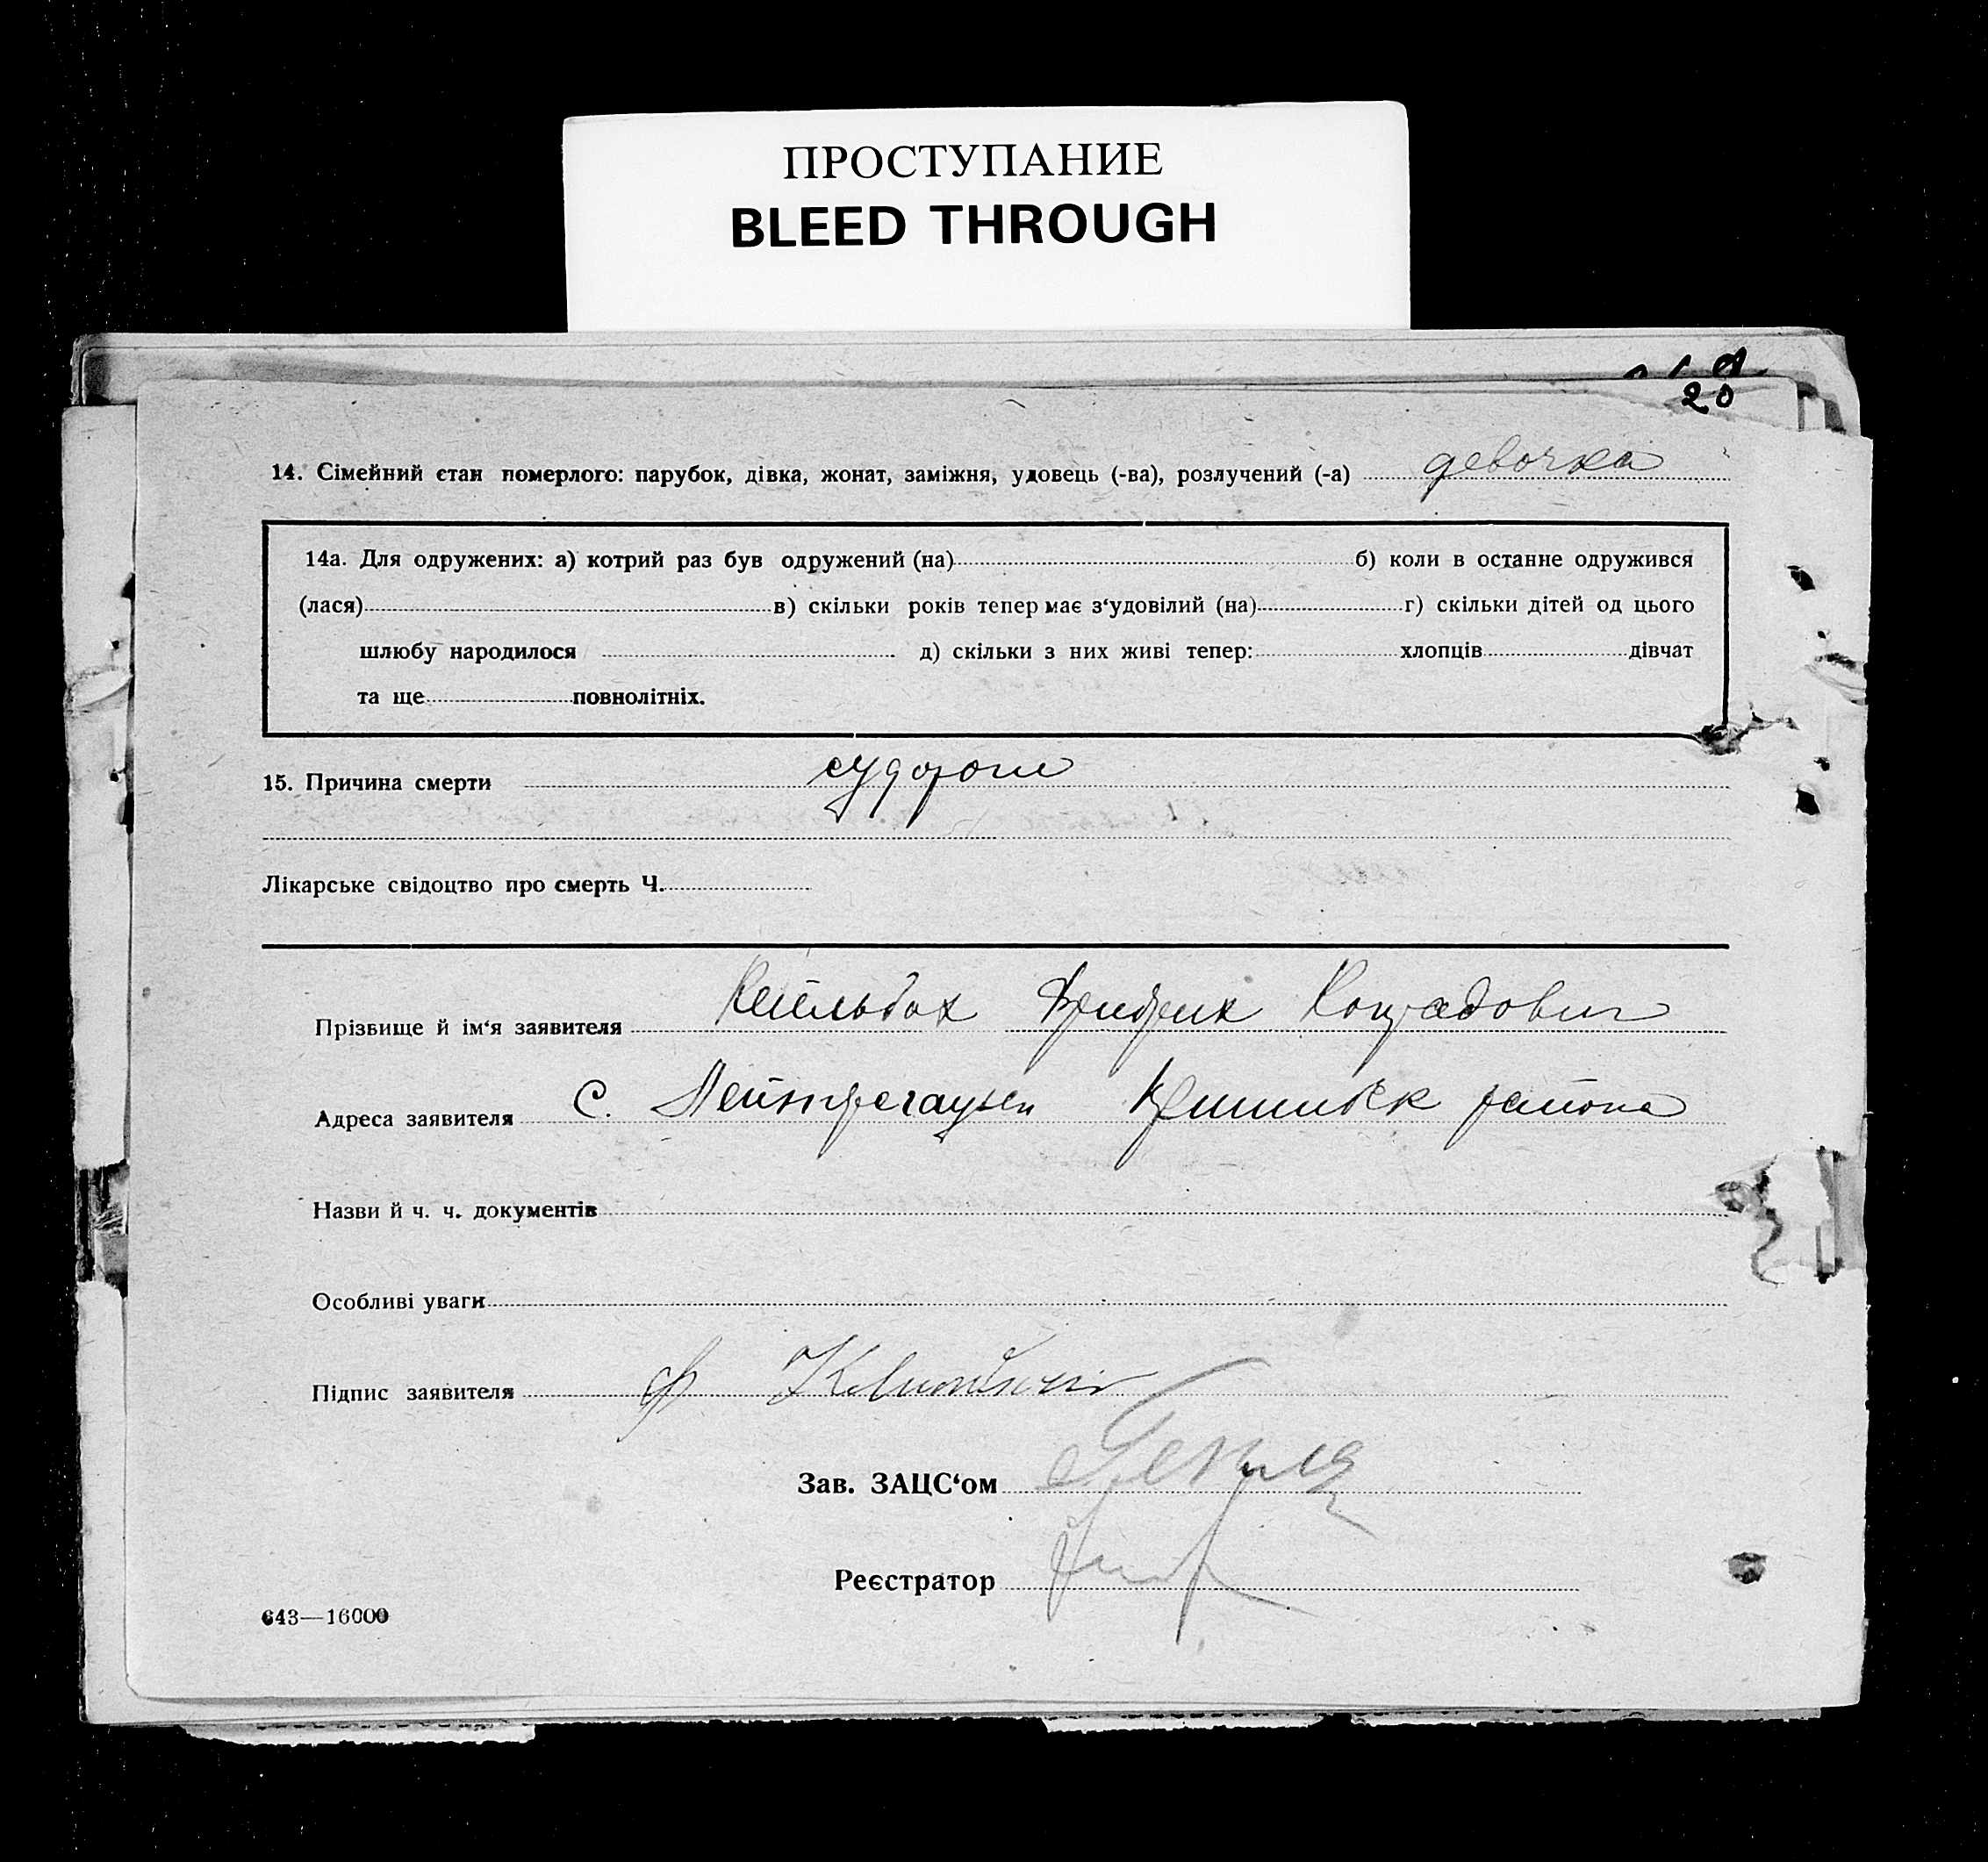 ПРОСТУПАНИЕ
BLEED THROUGH
20
14. Сімейний стан померлого: парубок, дівка, жонат, заміжня, удовець (-ва), розлучений (-а) девочка
14а. Для одружених: а) котрий раз був одружений (на) б) коли в останне одружився
(лася) в) скільки років тепер має з‘удовілий (на) г) скільки дітей од цього
шлюбу народилося д) скільки з них живі тепер: хлопців дівчат
та ще повнолітніх.
15. Причина смерти судороги
Лікарське свідоцтво про смерть Ч.
Прізвище й ім‘я заявителя Кельбах Фридрих Конрадович
Адреса заявителя с. района
Назви й ч. ч. документів
Особливі уваги
Підпис заявителя
Зав. ЗАЦС‘ом
Реєстратор
643—16000